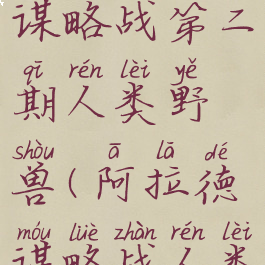 谋略战第二
qī rén lèi yě
期人类野
shòu ā lā dé
兽(阿拉德
móu lüè zhàn rén lèi
谋略战人类